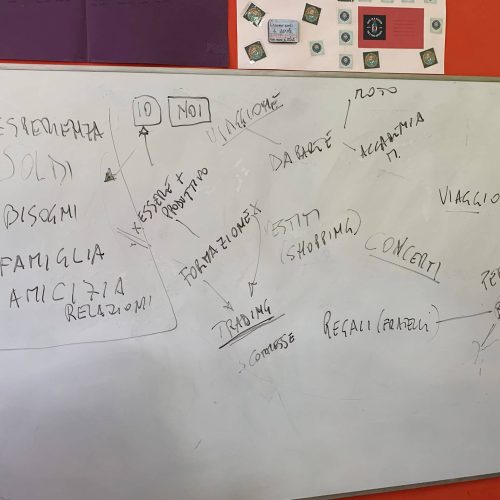 ESPERIENZA
SOLDI
BISOGNI
FAMIGLIA
AMICIZIA
RELAZIONI
IO
NOI
VIAGGIONE
DA PARTE
MOTO
ACCADEMIA
M.
VIAGGIO
X ESSERE +
PRODUTTIVO
FORMAZIONE X
VESTITI
(SHOPPING)
CONCERTI
TRADING
SCOMMESSE
REGALI (FRATELLI)
PER